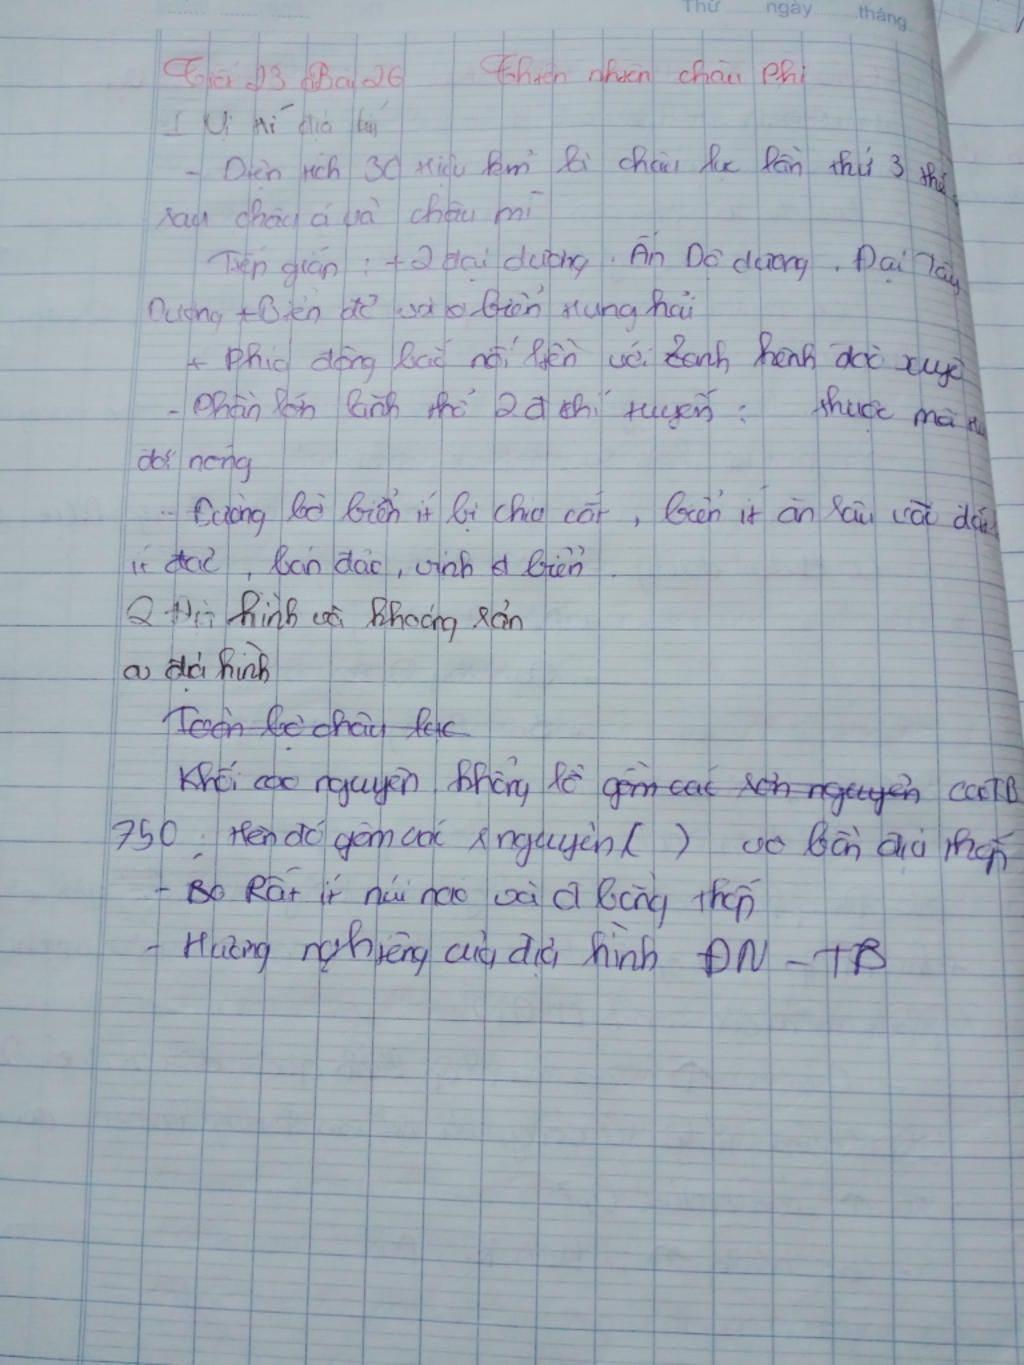 Thứ ngày tháng
Tiết 23 Bài 26 Thiên nhiên châu Phi
1 Vị trí địa lí
- Diện tích 30 triệu km² là châu lục lớn thứ 3 thế
sau châu á và châu mĩ
Tiếp giáp : + 2 đại dương . Ấn Độ dương . Đại Tây
Dương + Biển đỏ và biển trung hải
+ Phía đông bắc nối liền với kênh đào xuyê
- Phần lớn lãnh thổ 2 chí tuyến : thuộc môi
đới nóng
- Đường bờ biển ít bị chia cắt , biển ít ăn sâu vào đất
ít đảo , bán đảo , vịnh biển
2 Địa hình và khoáng sản
a) địa hình
Toàn bộ châu lục
Khối cao nguyên khổng lồ gồm các sơn nguyên caoTB
750 . trên đó gồm các nguyên ( ) và bồn địa thấp
- Rất ít núi cao và đ bằng thấp
- Hướng nghiêng của địa hình ĐN - TB